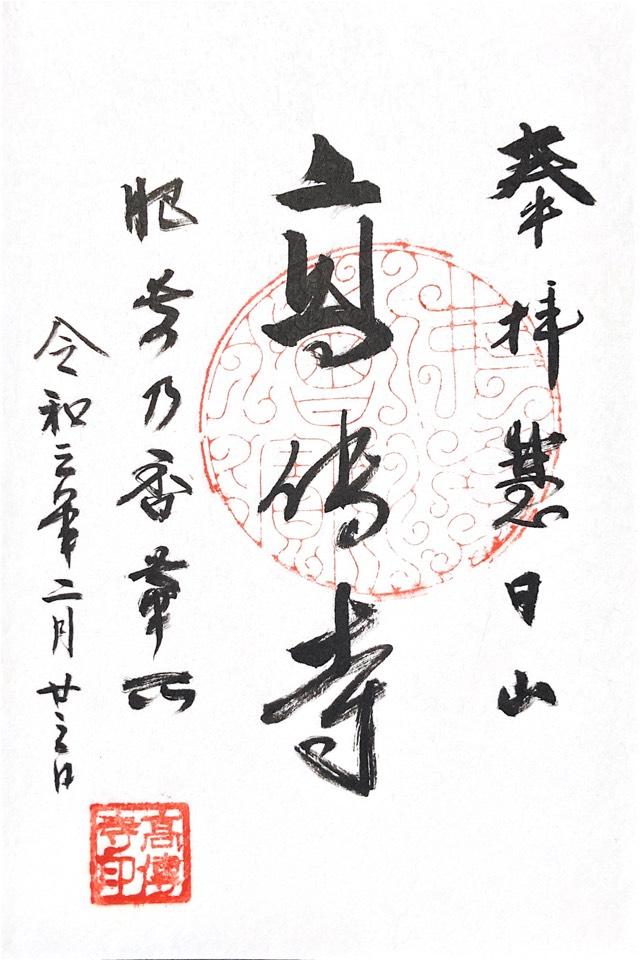 奉拝 慧日山
高傳寺
肥前乃香華所
令和三年二月廿三日
高傳
寺印